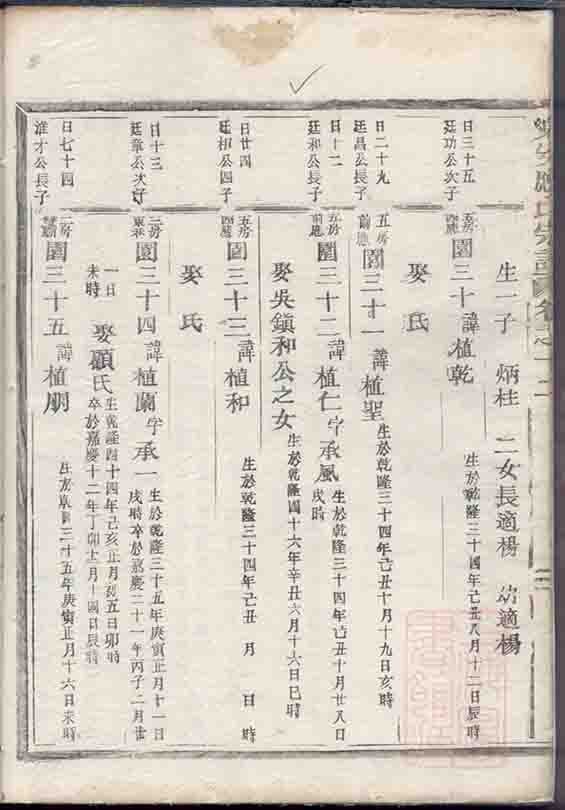 氏宗譜
生一子 炳桂 二女長適楊 幼適楊
日三十五
廷功公次子
五房
圚三十諱植乾 生於乾隆三十四年己丑八月十二日辰時
娶氏
日二十九
廷昌公長子
五房
圚三十一諱植聖 生於乾隆三十四年己丑十月十九日亥時
日十二
廷和公長子
五房
圚三十二諱植仁字承風 生於乾隆三十四年己丑十月廿八日
戌時
娶吳鎮和公之女 生於乾隆四十六年辛丑六月十六日巳時
日廿四
廷相公四子
五房
圚三十三諱植和 生於乾隆三十四年己丑 月 日 時
娶氏
日十三
廷章公次子
三房
圚三十四諱植蘭字承一 生於乾隆三十五年庚寅正月十一日
戌時卒於嘉慶二十一年丙子二月廿
一日
未時
娶顧氏 生乾隆四十四年己亥正月初五日卯時
卒於嘉慶十二年丁卯 月十四日辰時
日七十四
淮才公長子
二房
圚三十五諱植朋 生於乾隆三十五年庚寅正月十六日未時